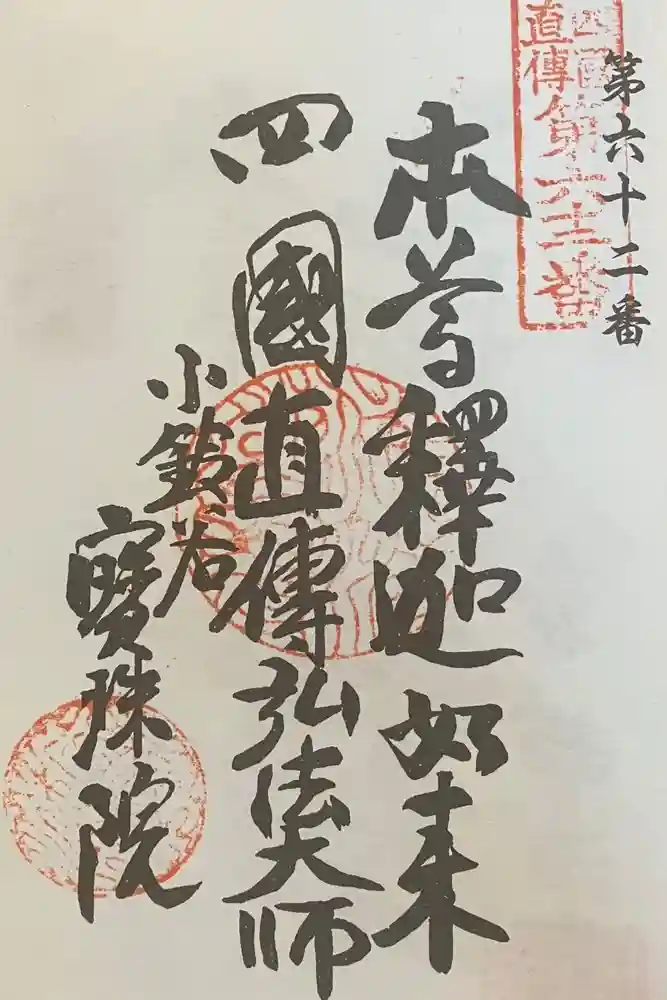 第六十二番
四國直傳
第六十二番
本尊釋迦如来
四國直傳弘法大師
小鈴谷
寳珠院